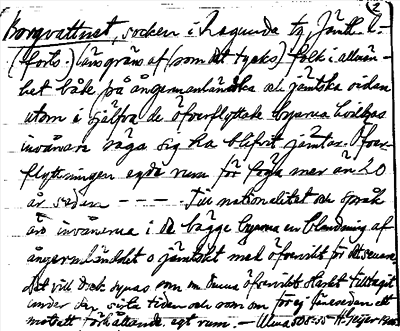 Borgvattnet, socken i Ragunda tg, Jämtl. l.
(forts.) länsgräns af (som det tycks) folk i allmän-
het både på ångermanländska och jämtska sidan
utom i själfva de öfverflyttade byarna hvilkas
invånare säga sig ha blifvit jämtar. Öfver-
flyttningen egde rum för föga mer än 20
år sedan — — — . Till nationalitet och språk
äro invånarna i de bägge byarna en blandning af
ångermanländskt o jämtskt med öfvervikt för det senare.
Det vill dock synas som om denna öfvervikt starkt tilltagit
under den sista tiden och som om för ej länge sedan ett
motsatt förhållande egt rum. —